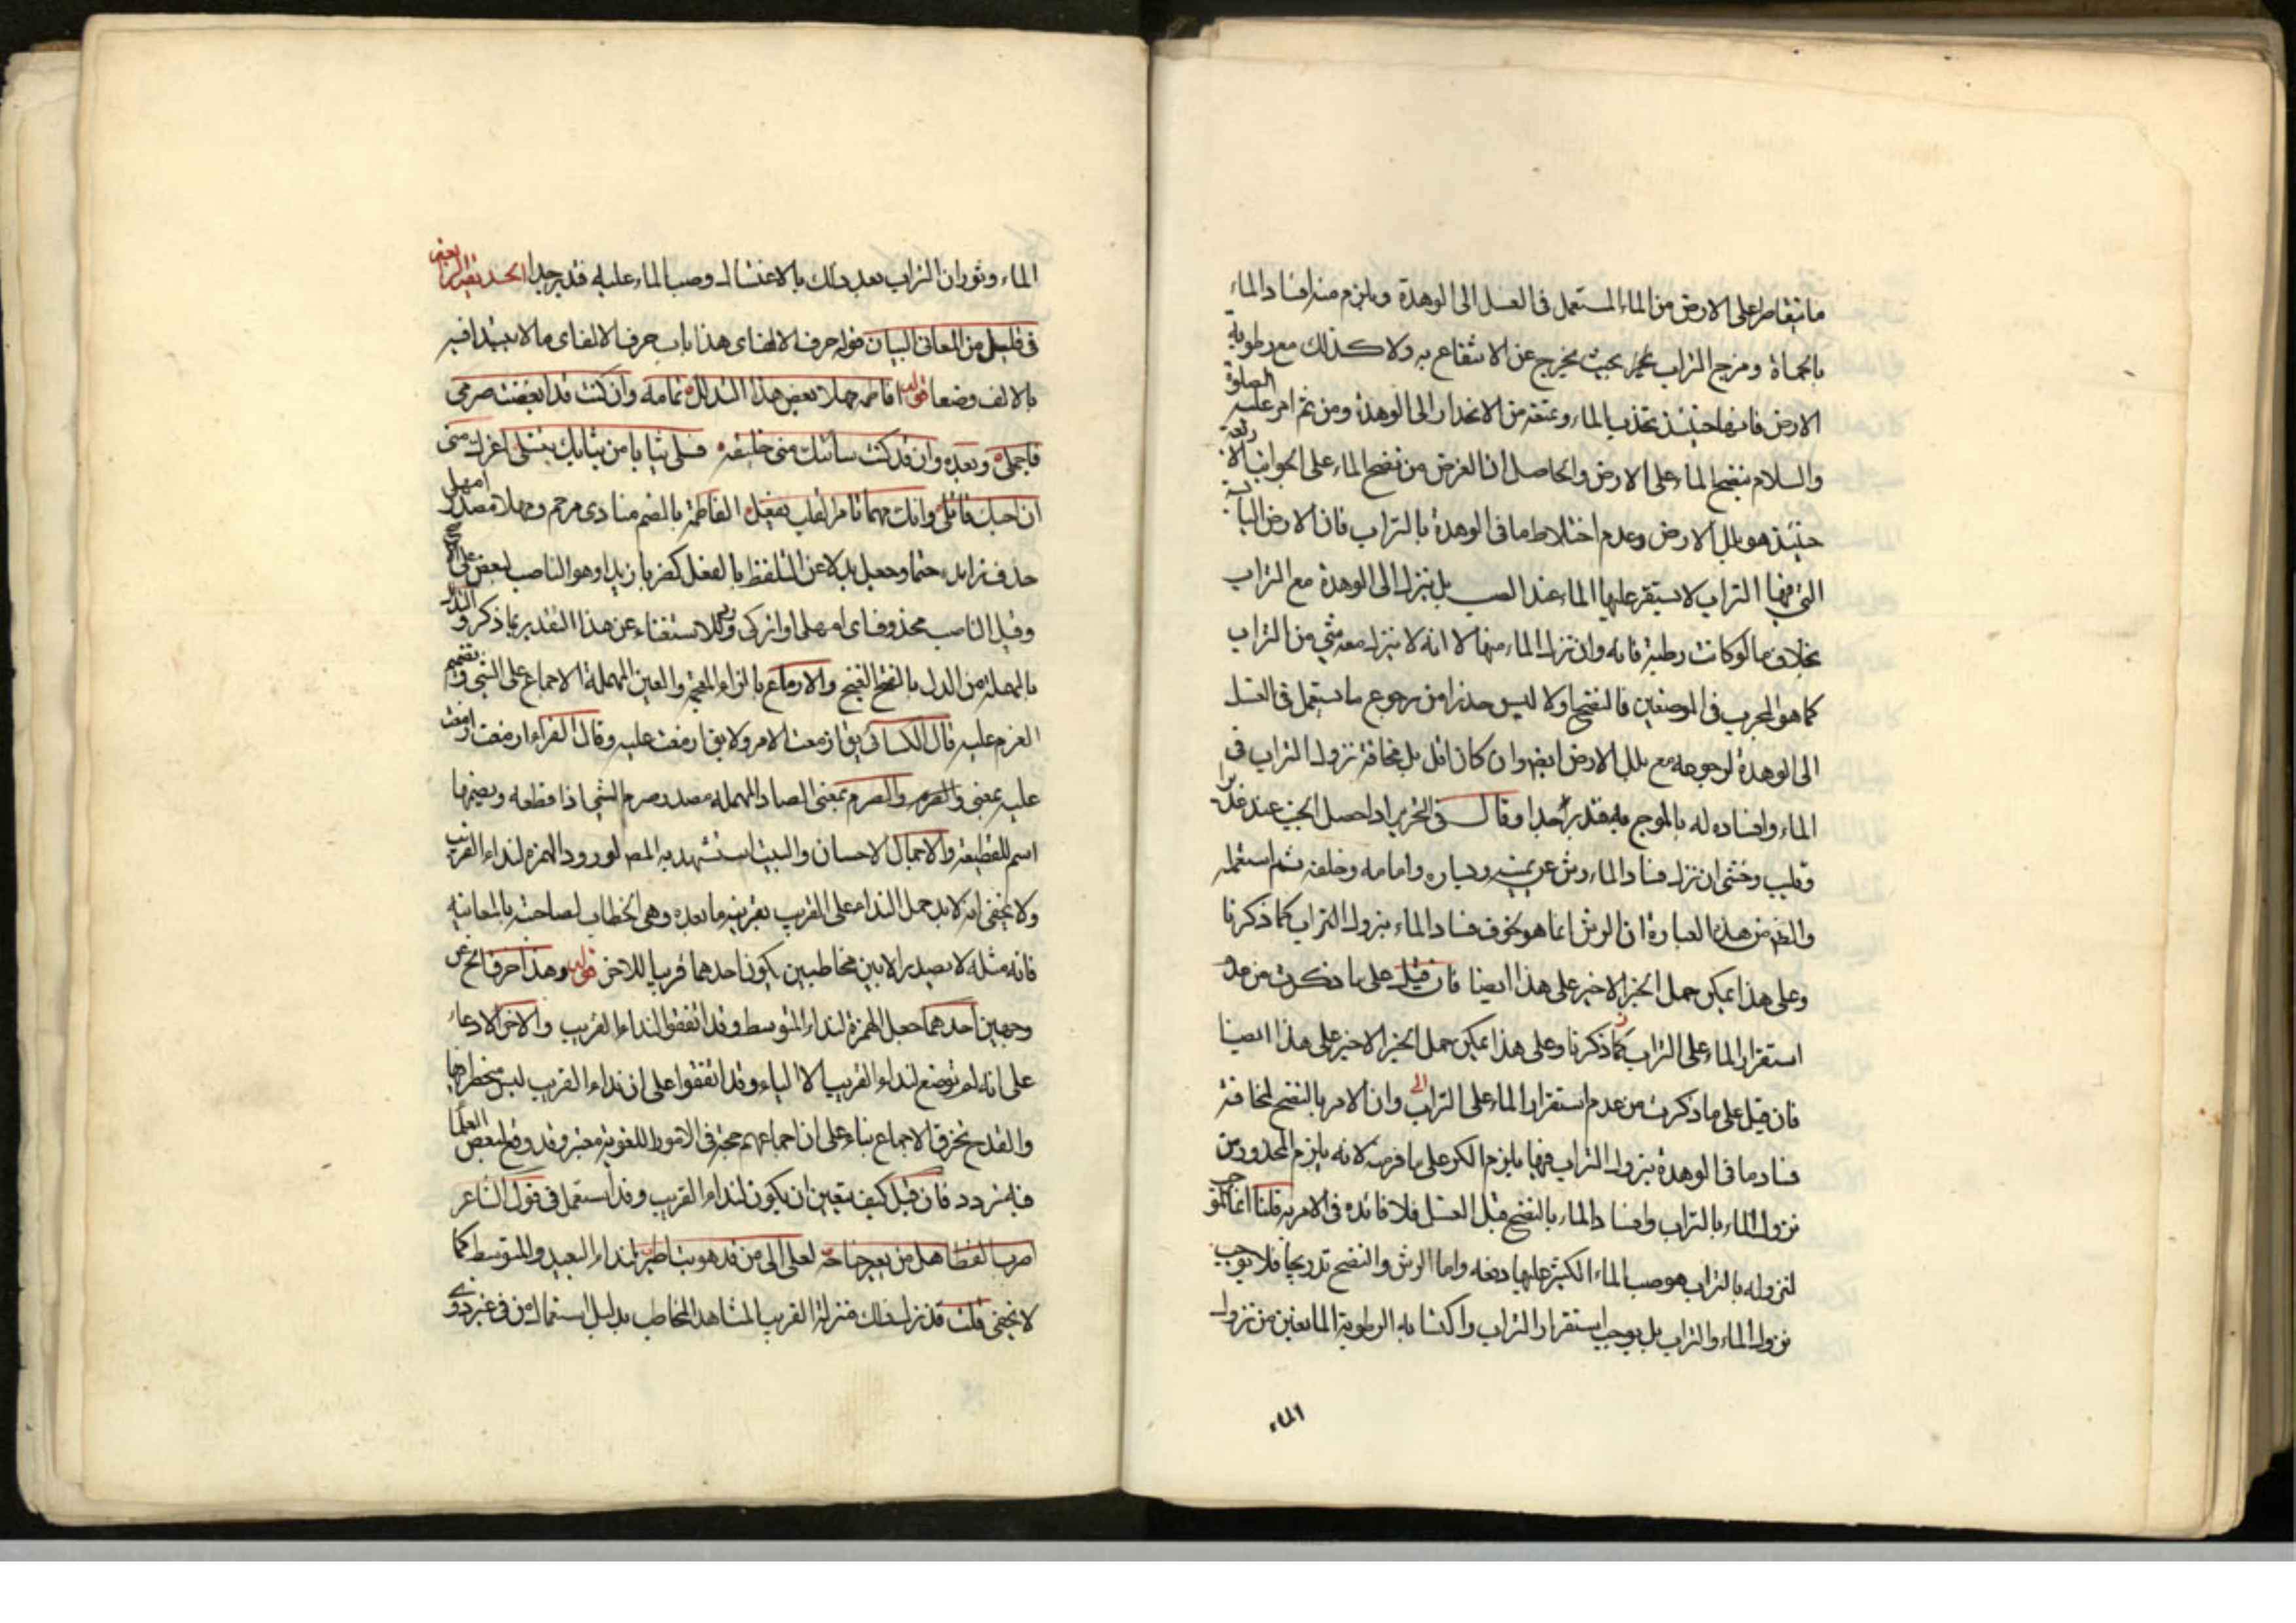 ما يتقاطر على الارض من الماء المستعمل فى الغسل الى الوهدة ويلزم منه افساد الماء
بالحماة ومزج التراب بحيث يخرج عن الانتفاع به ولا كذلك مع رطوبة
الارض فانها حينئذ تجذب الماء وتمنعه من الانحدار الى الوهدة ومن ثم امر عليه الصلوة
والسلام بنضح الماء على الارض والحاصل ان الغرض من نضح الماء على الجوانب الاربعة
حينئذ هو بلل الارض وعدم اختلاط ما فى الوهدة بالتراب فان الارض اليابسة
التى فيها التراب لا يستقر عليها الماء عند الصب بل ينزل الى الوهدة مع التراب
بخلاف ما لو كانت رطبة فانه وان نزل الماء منها الا انه لا ينزل معه شئ من التراب
كما هو المجرب فى الموضعين فالنضح اولا ليس حذرا من رجوع ما يستعمل فى الغسل
الى الوهدة لرجوعه مع بلل الارض ايضا وان كان اقل بل مخافة نزول التراب فى
الماء وافساده له بالموج فيه فتدبر جدا وقال فى التحرير اذا حصل الجنب عند غدير
وقليب وخشى ان نزل فساد الماء رش عن يمينه ويساره وامامه وخلفه ثم استعمله
من هذه العبارة ان الرش انما هو لخوف فساد الماء بنزول التراب كما ذكرنا
وعلى هذا يمكن حمل الخبر الاخير على هذا ايضا فان قيل على ما ذكرت من عدم
استقرار الماء على التراب كما ذكرنا وعلى هذا يمكن حمل الخبر الاخير على هذا ايضا
فان قيل على ما ذكرت من عدم استقرار الماء على التراب وان الامر بالنضح لمخافة
فساد ما فى الوهدة بنزول التراب فيها يلزم الكر على ما فر منه لانه يلزم المحذور من
نزول الماء بالتراب وافساد الماء بالنضح قبل الغسل فلا فائدة فى الامر به قلنا انما الموجب
لنزوله بالتراب هو صب الماء الكثير عليها دفعة واما الرش والنضح تدريجا فلا يوجب
نزول الماء والتراب بل يوجب استقرار التراب واكتسابه الرطوبة المانعين من نزول
الماء
الماء وثوران التراب بعد ذلك بالاغتسال وصب الماء عليه فتدبر جدا
فى قليل من المعانى البيان قوله حرف الالف اى هذا باب حرف الالف اى ما لا يبتدا فيه
بالالف وضعا قوله افاطم مهلا بعض هذا التدلل تمامه وان كنت قد ازمعت صرمى
فاجملى وبعده وان قد كنت ساءتك منى خليقة فسلى ثيابا من ثيابك تنسلى اغرك منى
ان حبك قاتلى وانك مهما تامر القلب يفعل الفاطمة بالضم منادى مرخم ومهلا مصدر امهل
حذف زايده حتما وجعل بدلا عن التلفظ بالفعل كضربا زيدا وهو الناصب لبعض على
وقيل الناصب محذوف اى امهلى او اتركى وللاستغناء عن هذا التقدير بما ذكر والتدلل
بالمهملة من الدل بالفتح الغنج والازماع بالزاء المعجمة والعين المهملة الاجماع على الشئ وتصميم
العزم عليه قال الكسائى يق ازمعت الامر ولا يق ازمعت عليه وقال الفراء ازمعته وازمعت
عليه بمعنى والصرم بمعنى الصاد المهملة مصدر صرم الشئ اذا قطعه وبضمها
اسم للقطيعة والاجمال الاحسان والبيت استشهد به المص لورود الهمزة لنداء القريب
ولا يخفى انه لا بد حمل النداء على القريب بقرينة ما بعده وهى الخطاب لصاحبته بالمعاتبة
فانه مثله لا يصدر الا بين مخاطبين يكون احدهما قريبا للاخر قوله وهذا خرق الخ من
وجهين احدهما جعل الهمزة لنداء المتوسط وقد اتفقوا لنداء القريب والاخر الادعاء
على انه لم توضع لنداء القريب الا الياء وقد اتفقوا على ان نداء القريب ليس منحصرا بها
والقدح بخرق الاجماع بناء على ان اجماعهم حجة فى الامور اللغوية معتبر وقد وقع لبعض العلما
فيه تردد فان قيل كيف يتعين ان يكون لنداء القريب وقد استعمل فى قول الشاعر
اسرب القطا هل من يعير جناحه لعلى الى من قد هويت اطير لنداء البعيد والمتوسط كما
لا يخفى قلت قد نزل ذلك منزلة القريب المشاهد المخاطب بدليل استعماله من فى غير ذوى